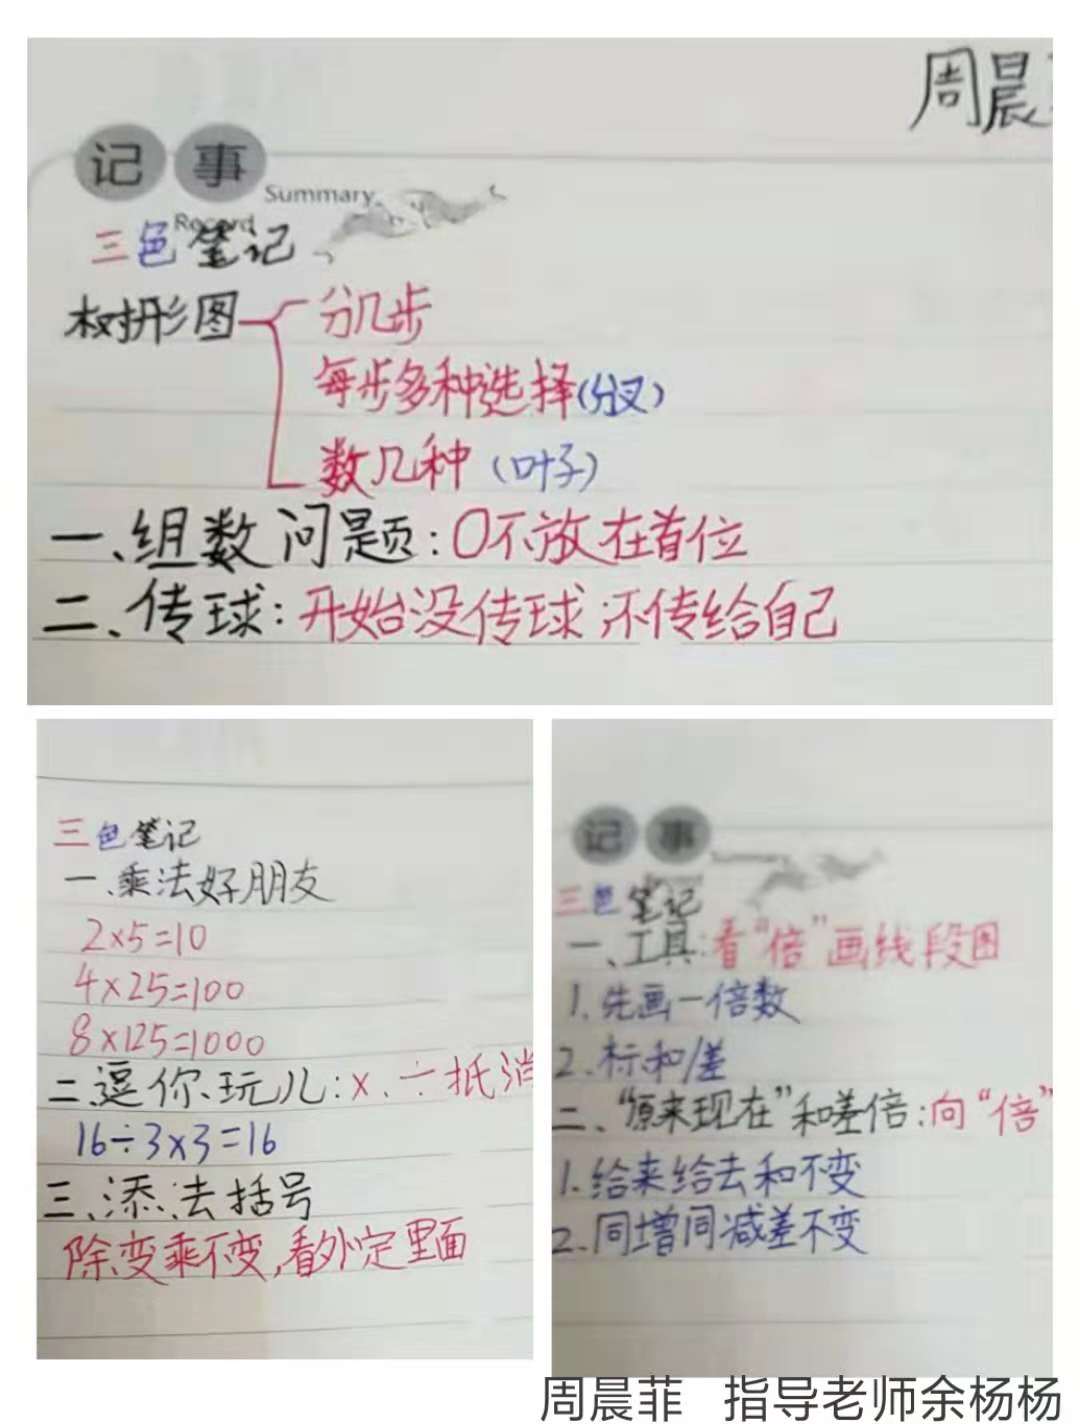 周晨
记事
Summary
Record
三色笔记
树形图
分几步
每步多种选择(分叉)
数几种(叶子)
一、组数问题:0不放在首位
二、传球:开始没传球 不传给自己
三色笔记
一、乘法好朋友
2×5=10
4×25=100
8×125=1000
二、逗你玩儿:×、÷抵消
16÷3×3=16
三、添、去括号
除变乘不变,看外定里面
记事
三色笔记
一、工具:看“倍”画线段图
1.先画一倍数
2.标和/差
二、“原来现在”和差倍:向“倍”
1.给来给去和不变
2.同增同减差不变
周晨菲 指导老师余杨杨